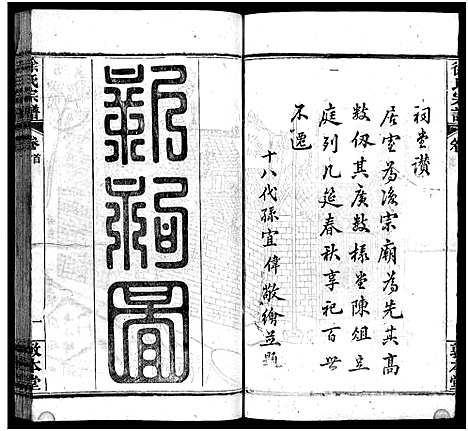 祠堂讚
居室為後宗廟為先其高
數仞其廣數樣堂陳俎豆
庭列几筵春秋享祀百世
不遷
十八代孫宜偉敬繪並題
新祠圖
徐氏宗譜
卷首
一
敦本堂